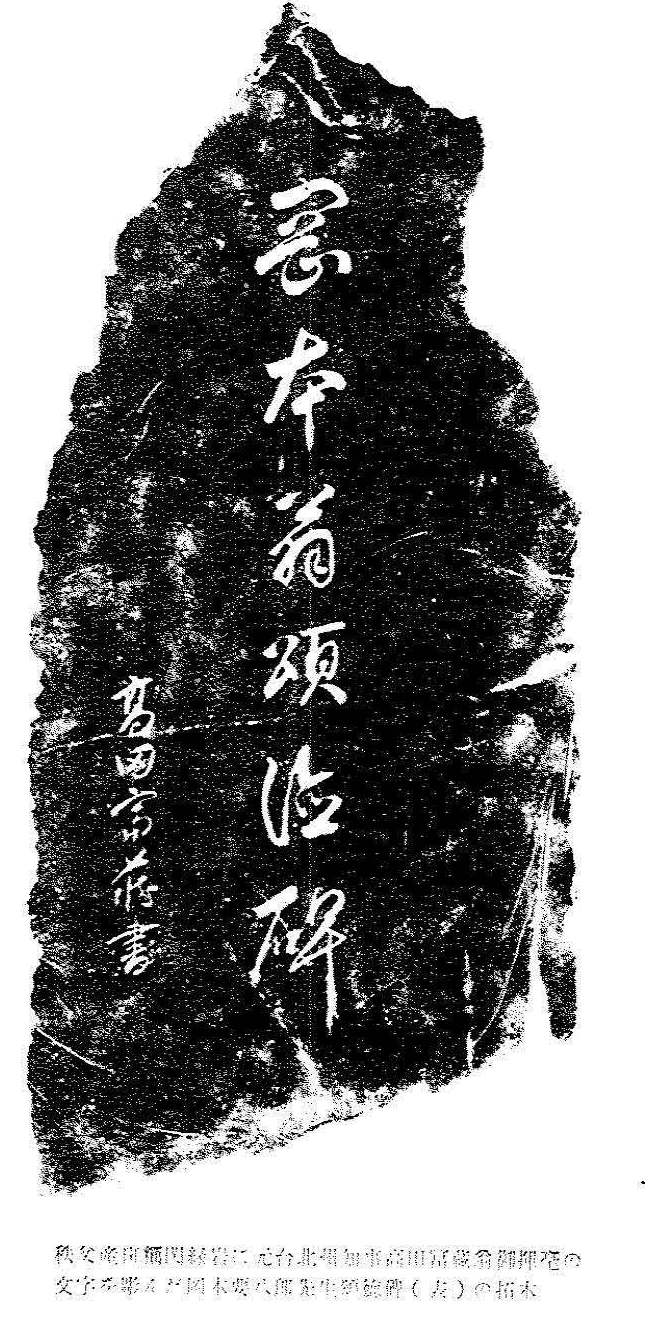 岡本翁頌徳碑
高田富蔵書
秩父産閃緑岩に元台北州知事高田富蔵翁御揮毫の
文字を彫んだ岡本要八郎先生頌徳碑(表)の拓本